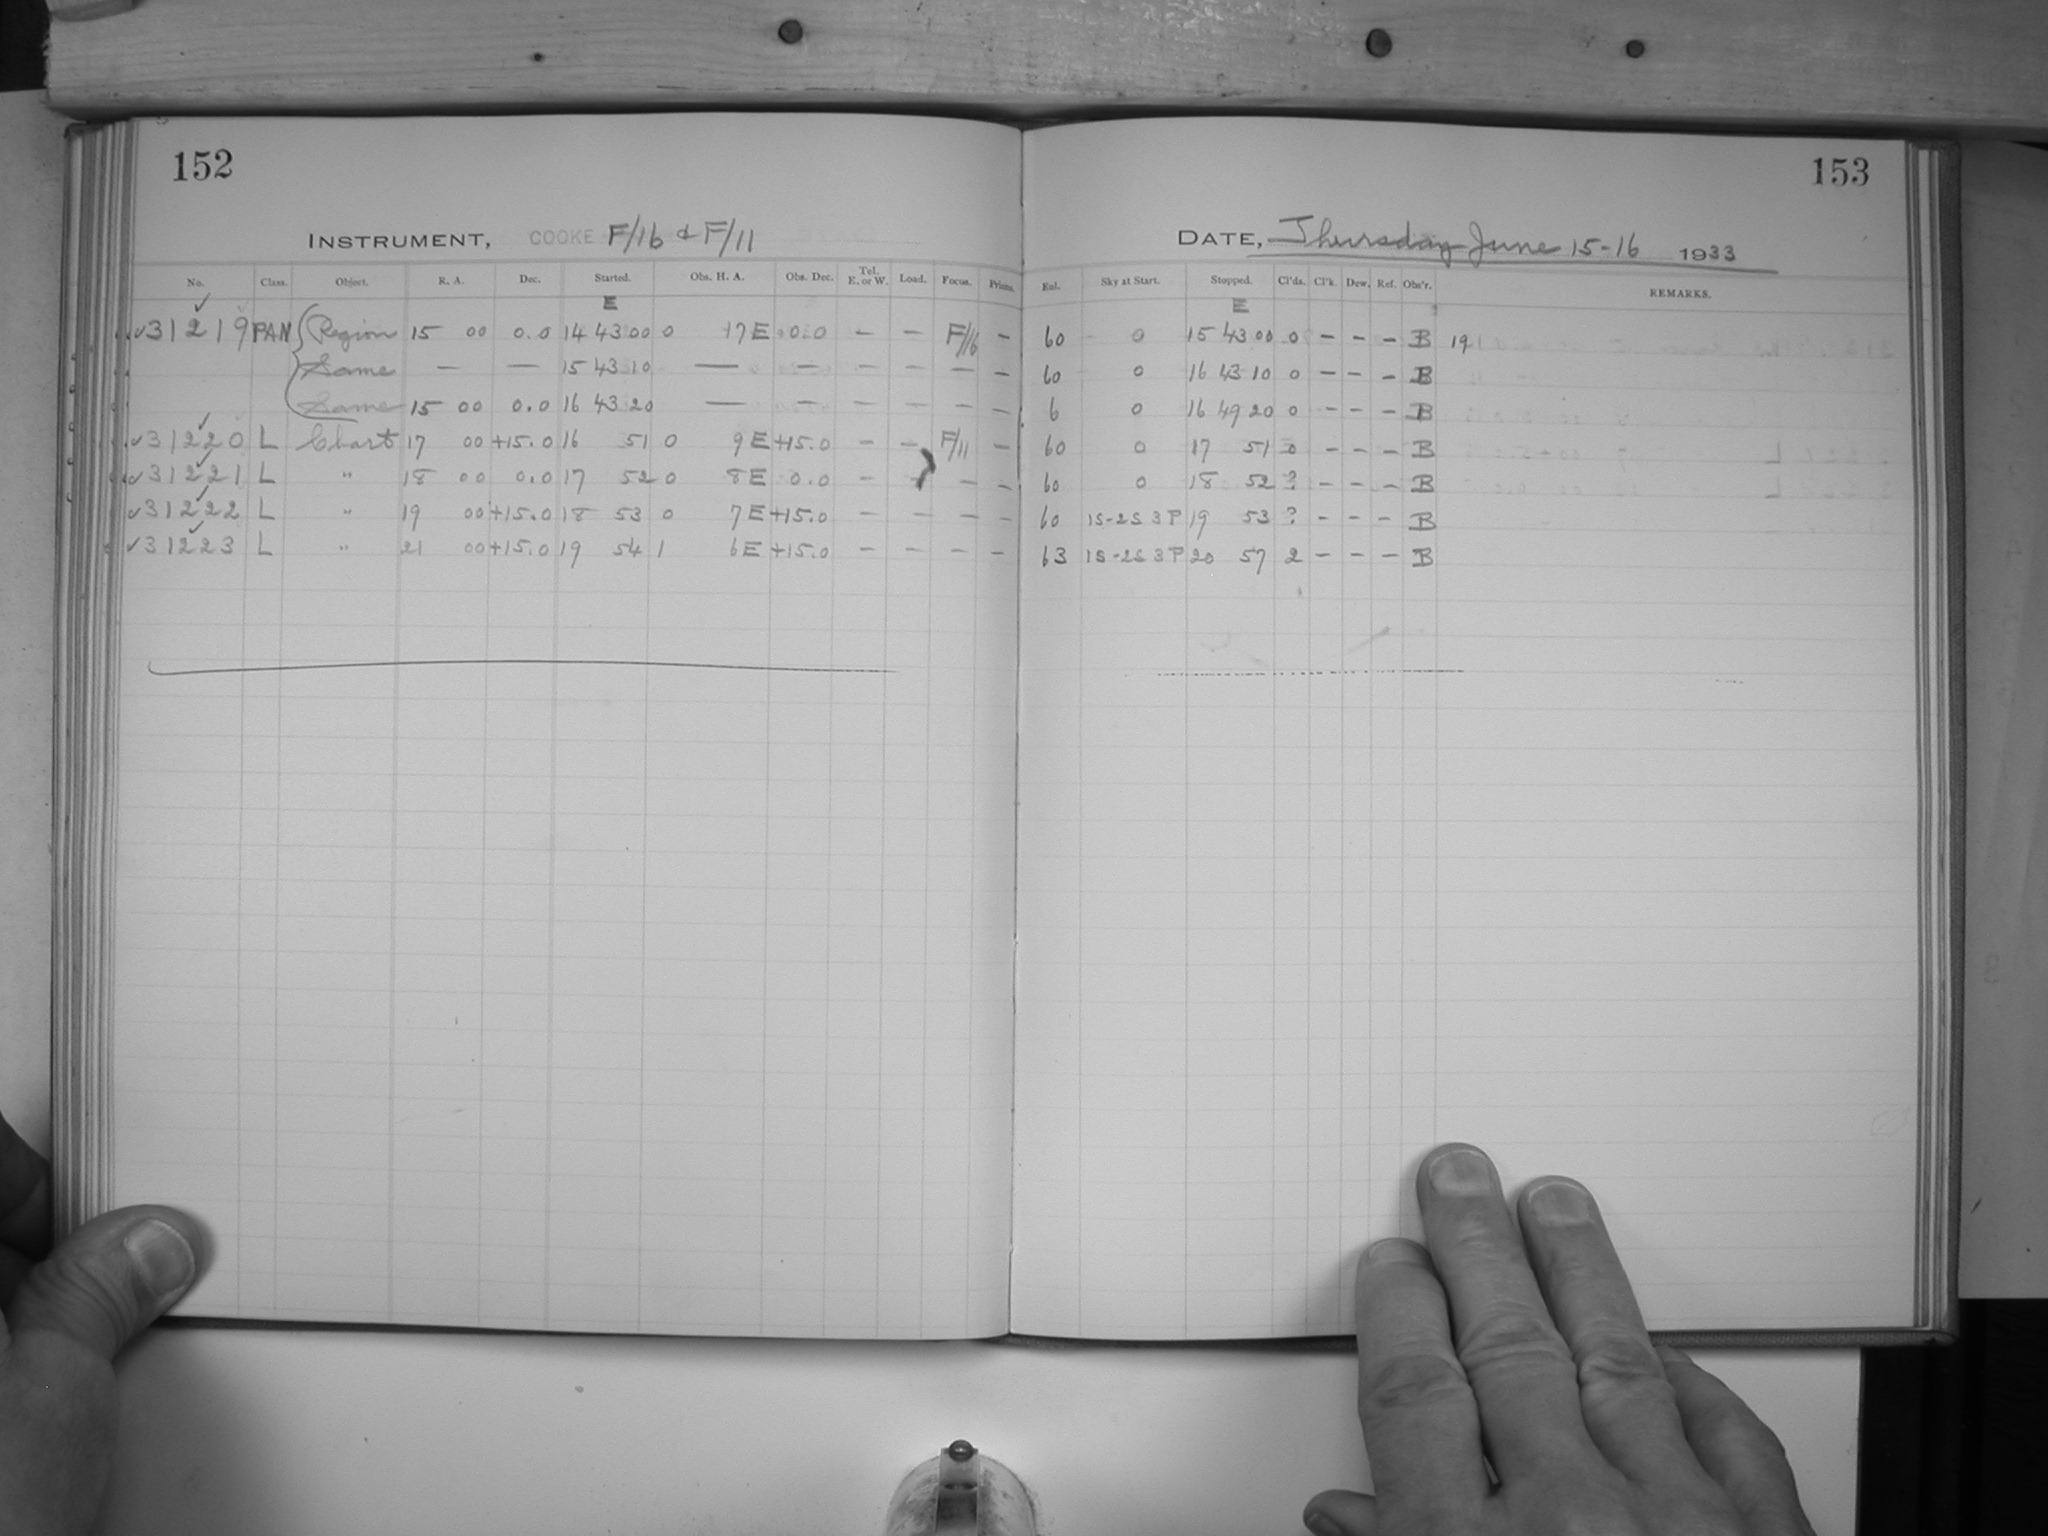 152
153
INSTRUMENT, COOKE F/16 & F/11
DATE, Thursday June 15-16 1933
No. Class. Object. R. A. Dec. Started. Obs. H. A. Obs. Dec. Tel. E. or W. Load. Focus. Prisms. Exl. Sky at Start. Stopped. Cl'ds. Cl'k. Dew. Ref. Obs'r. REMARKS.
E E
31219 PAN Region 15 00 0.0 14 43 00 0 17 E 0.0 — — F/16 — 60 0 15 43 00 0 — — — B 19
Same — — 15 43 10 — — — — — — 60 0 16 43 10 0 — — — B
Same 15 00 0.0 16 43 20 — — — — — — 6 0 16 49 20 0 — — — B
31220 L Chart 17 00 +15.0 16 51 0 9 E +15.0 — — F/11 — 60 0 17 51 0 — — — B
31221 L " 18 00 0.0 17 52 0 8 E 0.0 — — — 60 0 18 52 ? — — — B
31222 L " 19 00 +15.0 18 53 0 7 E +15.0 — — — — 60 1S-2S 3P 19 53 ? — — — B
31223 L " 21 00 +15.0 19 54 1 6 E +15.0 — — — — 63 1S-2S 3P 20 57 2 — — — B